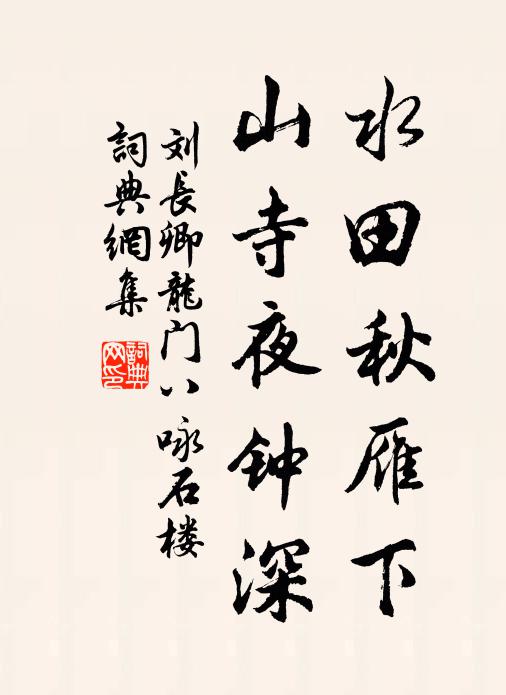 水田秋雁下
山寺夜钟深
刘長卿龍门八咏石楼
詞典網集
詞典网印